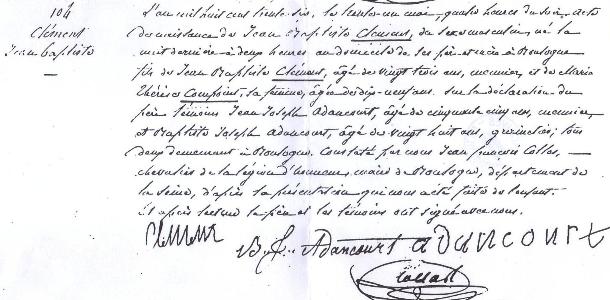 104
Clément
Jean baptiste
L'an mil huit cent trente-six, le trente-un mai, quatre heures du soir, acte
de naissance de Jean Baptiste Clément, du sexe masculin, né la
nuit dernière à deux heures au domicile de ses père et mère à Boulogne
fils de Jean Baptiste Clément, âgé de vingt trois ans, meunier, et de Marie
Thérèse Compoint, sa femme, âgée de dix-neuf ans. Sur la déclaration du
père témoins Jean Joseph Adancourt, âgé de cinquante cinq ans, meunier,
et Baptiste Joseph Adancourt, âgé de vingt huit ans, grainetier; tous
deux demeurant à Boulogne. Constaté par nous Jean françois Collas,
chevalier de la légion d'honneur, maire de Boulogne, département de
la Seine, d'après la présentation qui nous a été faite de l'enfant.
Et après lecture le père et les témoins ont signé avec nous.
Clément
B. J. Adancourt adancourt
Collas